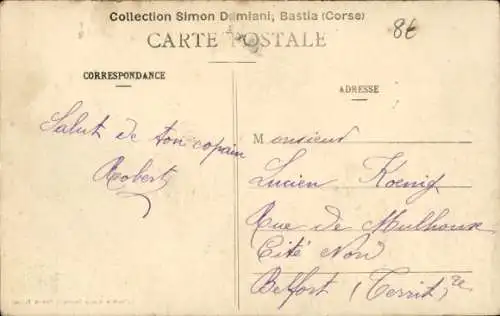 Collection Simon Damiani, Bastia (Corse)
CARTE POSTALE
8€
CORRESPONDANCE
ADRESSE
Salut de ton copain
Robert
Monsieur
Lucien Koenig
Rue de Mulhouse
Cité Nord
Belfort (Territ re